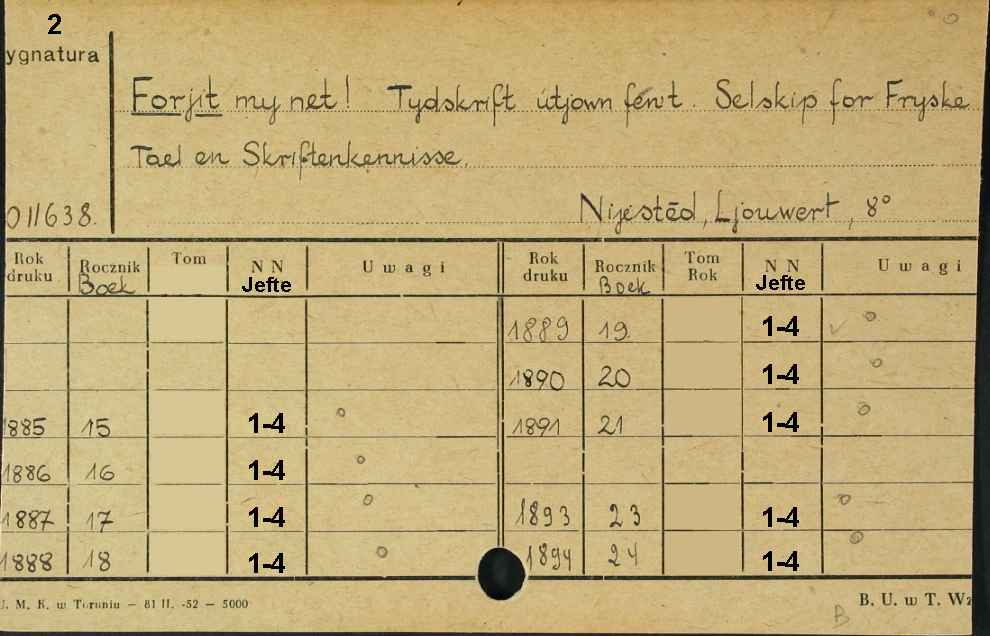 2
ygnatura
Forjit my net! Tydskrift útjown fenwt. Selskip for Fryske
Tael en Skriftenkennisse.
011638. Nijestêd, Ljouwert, 8°
Rok druku Rocznik Boek Tom N N Jefte Uwagi Rok druku Rocznik Boek Tom Rok N N Jefte Uwagi
1889 19 1-4
1890 20 1-4
1885 15 1-4 1891 21 1-4
1886 16 1-4
1887 17 1-4 1893 23 1-4
1888 18 1-4 1894 24 1-4
U. M. K. w Toruniu — 81 II. -52 — 5000 B. U. w T. Wz
B